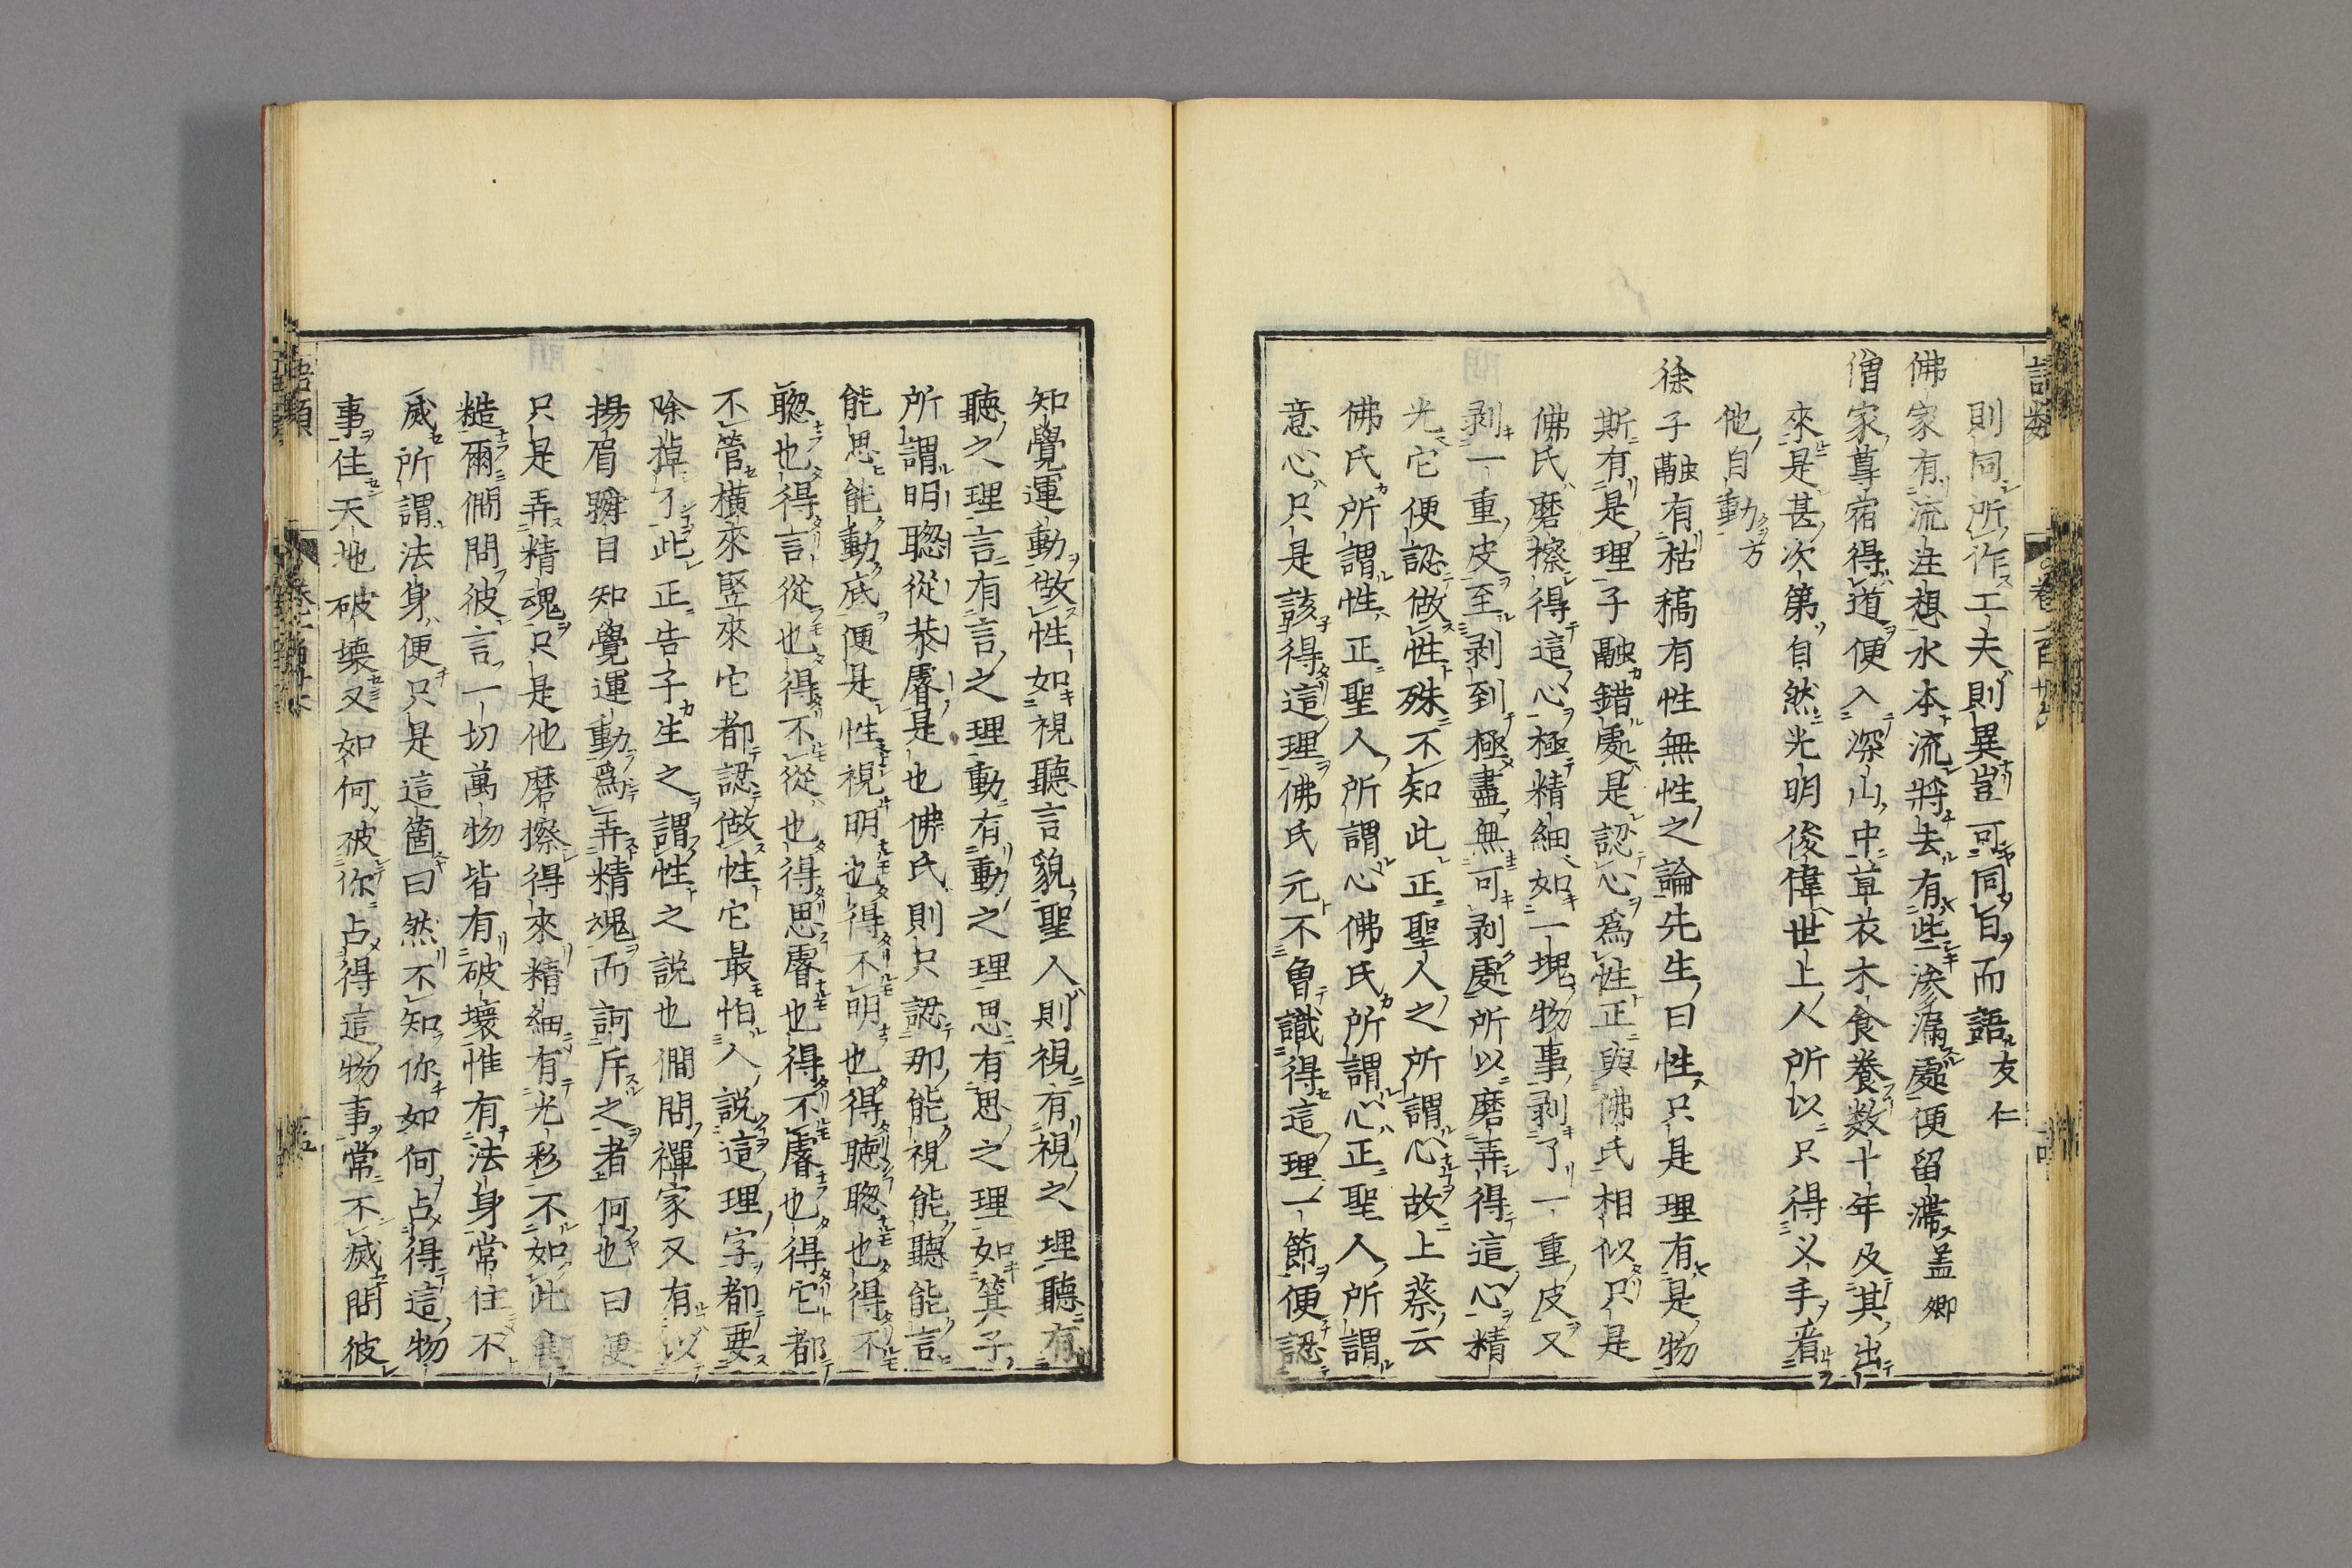 則同所作工夫則異豈可同日而語友仁
佛家有流注想水本流將去有些滲漏處便留滯盖卿
僧家尊宿得道便入深山中草衣木食養数十年及其出
來是甚次第自然光明俊偉世上人所以只得义手看
他自動方
徐子融有枯稿有性無性之論先生曰性只是理有是物
斯有是理子融錯處是認心爲性正與佛氏相似只是
佛氏磨擦得這心極精細如一塊物事剥了一重皮又
剥一重皮至剥到極盡無可剥處所以磨弄得這心精
光它便認做性殊不知此正聖人之所謂心故上蔡云
佛氏所謂性正聖人所謂心佛氏所謂心正聖人所謂
意心只是該得這理佛氏元不曾識得這理一節便認
知覺運動做性如視聽言貌聖人則視有視之理聽有
聽之理言有言之理動有動之理思有思之理如箕子
所謂明聰從恭睿是也佛氏則只認那能視能聽能言
能思能動底便是性視明也得不明也得聽聰也得不
聰也得言從也得不從也得思睿也得不睿也得它都
不管橫來竪來它都認做性它最怕人説這理字都要
除掉了此正告子生之謂性之説也僩問禪家又有以
揚眉瞬目知覺運動爲弄精魂而訶斥之者何也曰便
只是弄精魂只是他磨擦得來精細有光彩不如此
糙爾僩問彼言一切萬物皆有破壞惟有法身常住不
滅所謂法身便只是這箇曰然不知你如何占得這物
事住天地破壞又如何被你占得這物事常不滅問彼
語類